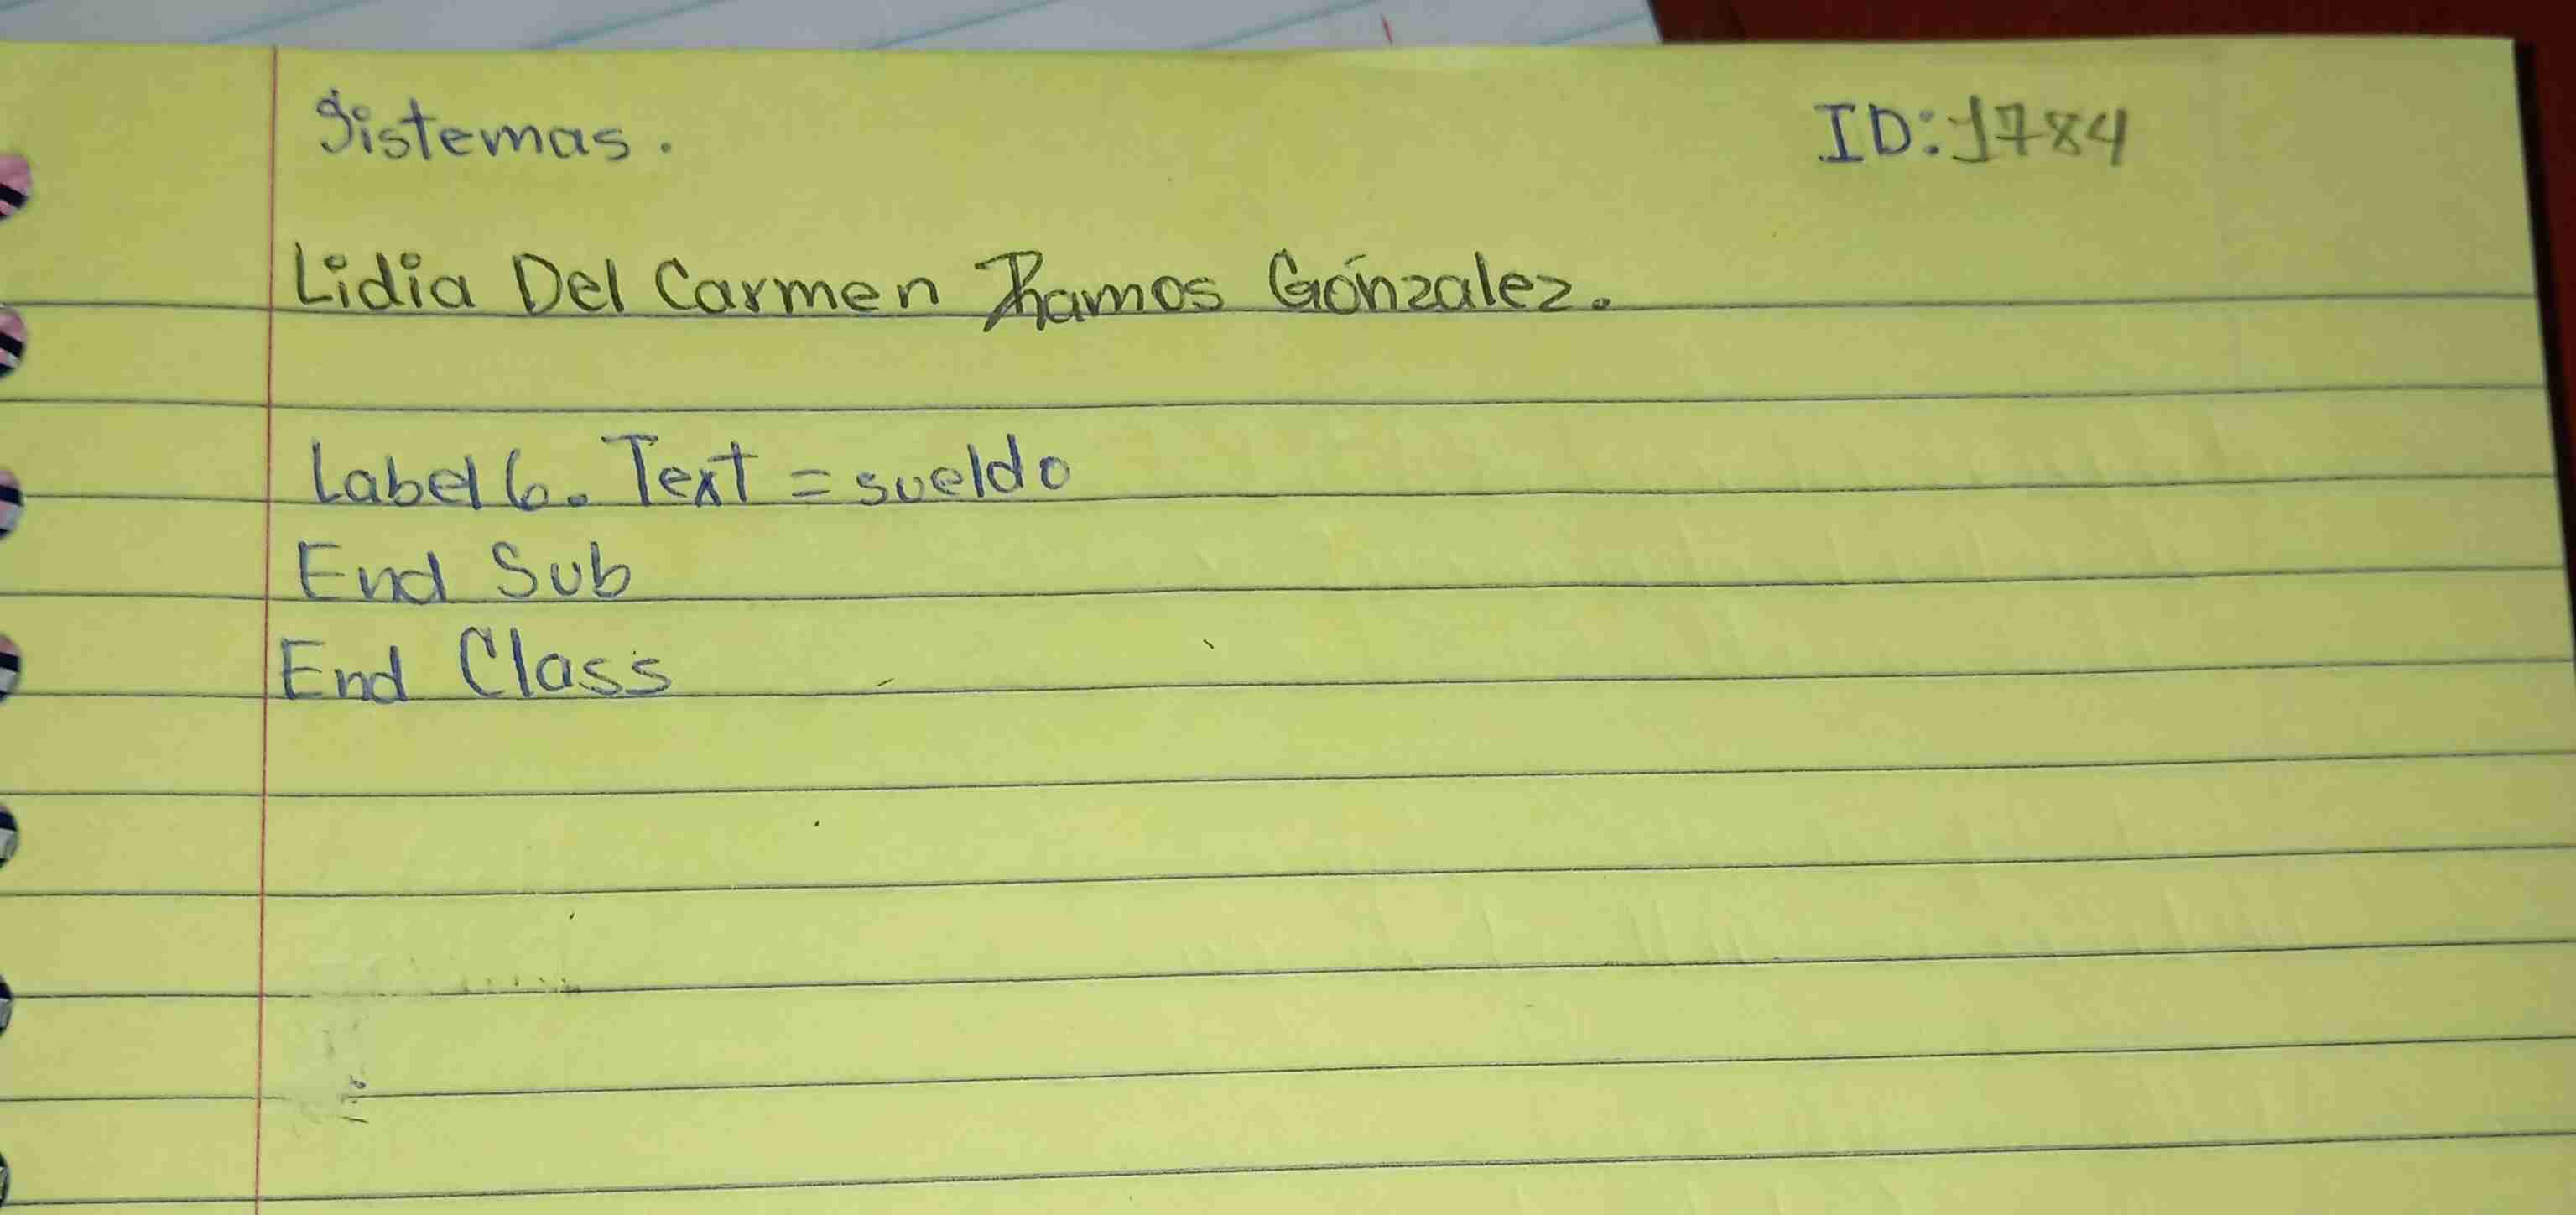 Sistemas. ID:1784
Lidia Del Carmen Ramos Gónzalez.
Label6.Text = sueldo
End Sub
End Class